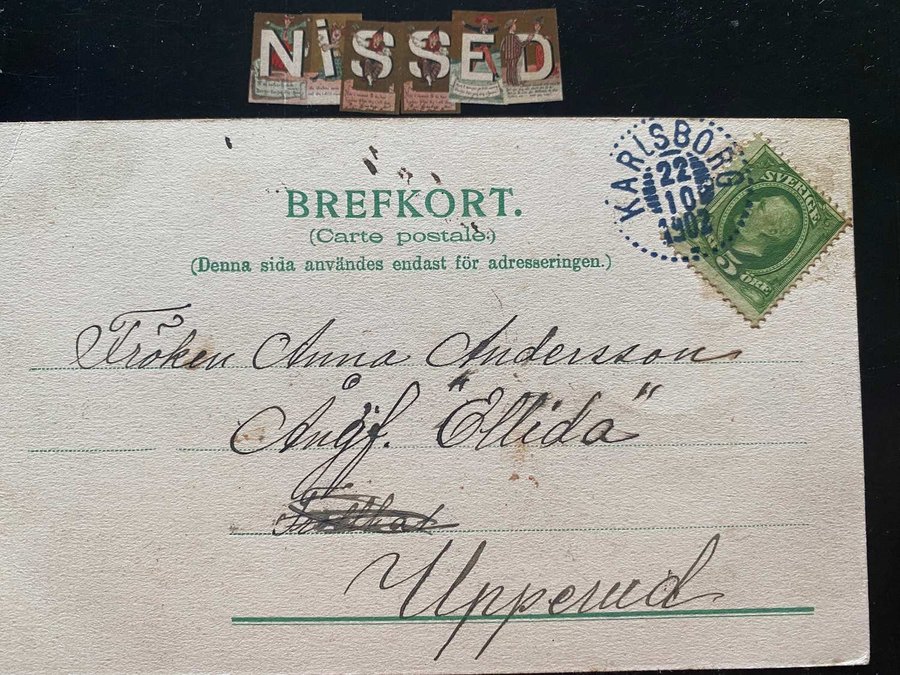 NiSSED
BREFKORT.
(Carte postale.)
(Denna sida användes endast för adresseringen.)
KARLSBORG
22
10
1902
SVERIGE
5 ÖRE
Fröken Anna Andersson
Ångf. "Ellida"
Upperud